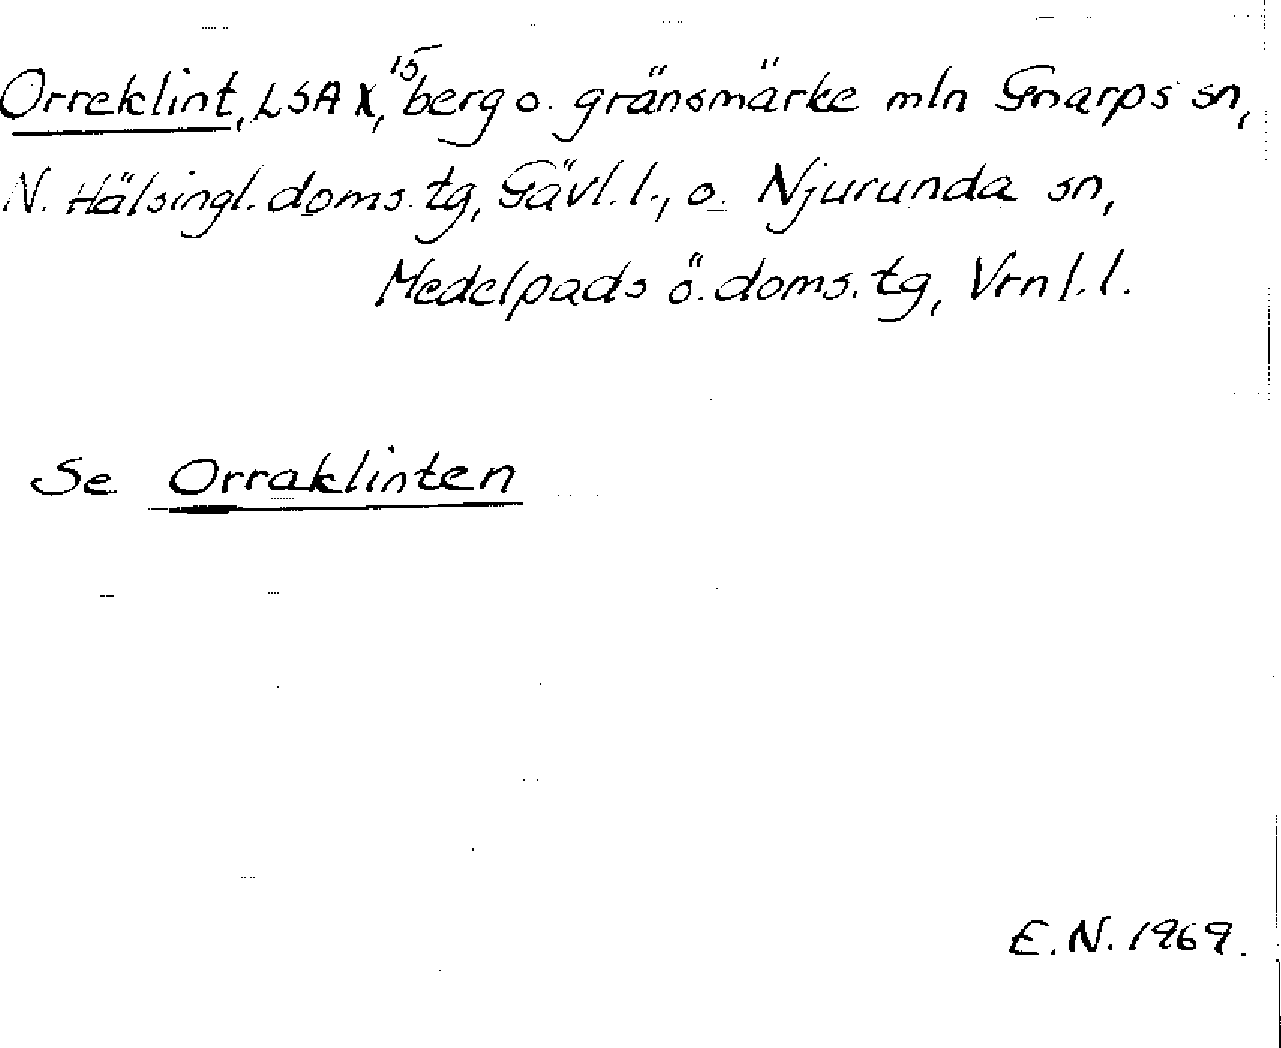 Orreklint, LSA X, 15 berg o. gränsmärke mln Gnarps sn,
N. Hälsingl. doms. tg, Gävl. l., o. Njurunda sn,
Medelpads ö. doms. tg, Vrnl. l.
Se Orraklinten
E. N. 1969.